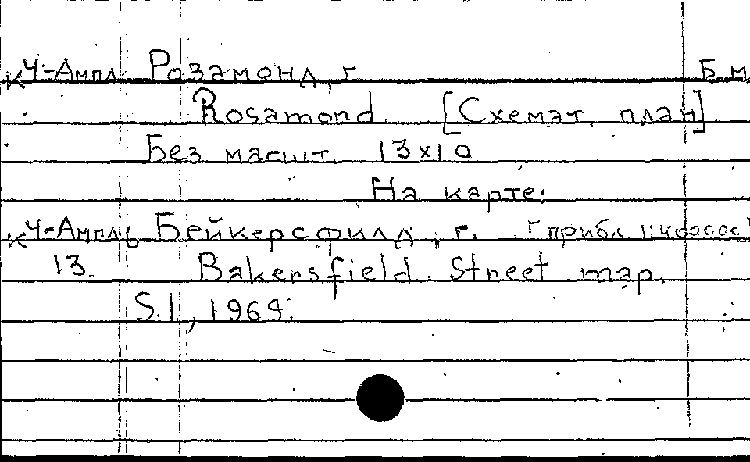 К Ч-Ампл Розамонд, г. Б.м.
Rosamond. [Схемат. план]
Без масшт. 13x10
На карте:
К Ч-Ампл, Бейкерсфилд, г. прибл.
13. Bakersfield. Street map.
S.l., 1969.